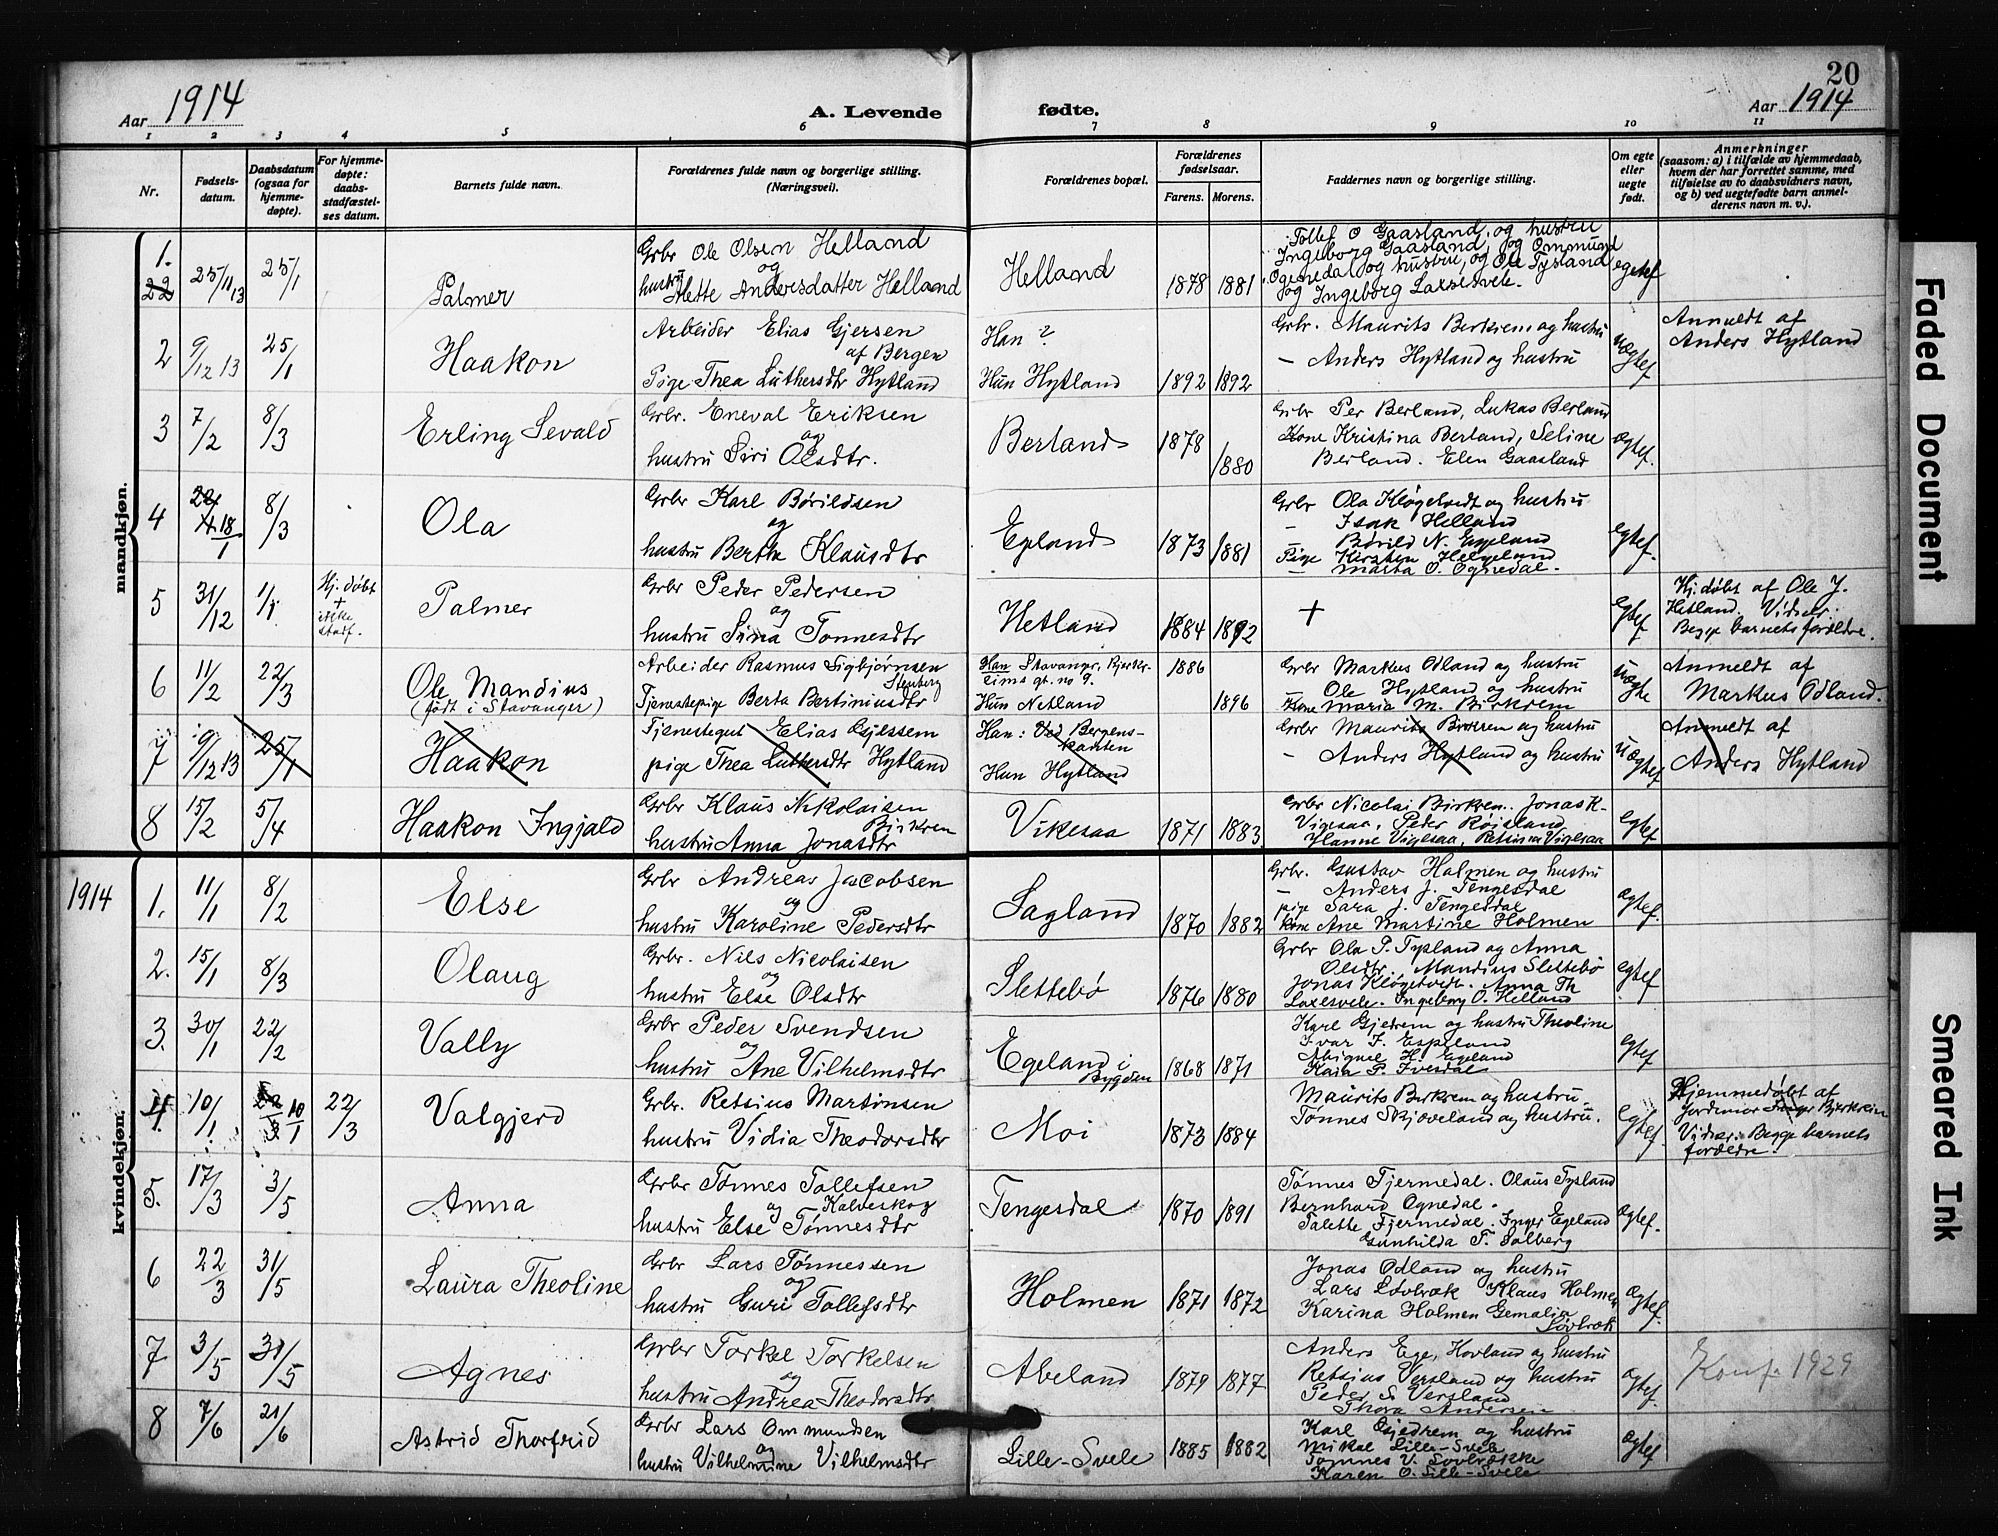 20
Aar 1914 A. Levende fødte. Aar 1914
1 2 3 4 5 6 7 8 9 10 11
Nr. Fødsels-datum. Daabsdatum (ogsaa for hjemme-døpte). For hjemme-døpte: daabs-stadfæstel-ses datum. Barnets fulde navn. Forældrenes fulde navn og borgerlige stilling. (Næringsvei). Forældrenes bopæl. Forældrenes fødselsaar. Farens. Morens. Faddernes navn og borgerlige stilling. Om egte eller uegte født. Anmerkninger (saasom: a) i tilfælde av hjemmedaab, hvem der har forrettet samme, med tilføielse av to daabsvidners navn, og b) ved uegtefødte barn anmel-derens navn m. v.).
mandkjøn.
1. 22 25/11 13 25/1 Palmer
Grbr Ole Olsen Helland
og
hustru Mette Andersdatter Helland
Helland 1878 1881
Tollef O Gaasland, og hustru
Ingeborg Gaasland, og Ommund
Ognedal og hustru, og Ole Tysland
og Ingeborg Laxesvele.
egtef
2 9/12 13 25/1 Haakon
Arbeider Elias Gjersen
af Bergen
Pige Thea Luthersdtr Hytland
Han ?
Hun Hytland 1892 1892
Grbr. Maurits Berkrem og hustru
— Anders Hytland og hustru
uægtef
Anmeldt af
Anders Hytland
3 7/2 8/3 Erling Sevald
Grbr. Eneval Eriksen
og
hustru Siri Olsdtr.
Berland 1878 1880
Grbr Per Berland, Lukas Berland
Kone Kristina Berland, Seline
Berland. Elen Gaasland
ægtef.
4 18/1 8/3 Ola
Grbr Karl Børildsen
og
hustru Berta Klausdtr
Egland 1873 1881
Grbr Ola Kløgetvedt og hustru
— Isak Helland
— Børild N. Egeland
Pige Kirsten Helgeland
— Marta O. Ognedal.
egtef.
5 31/12 1/1 Hj. døbt + ikke stadf. Palmer
Grbr Peder Pedersen
og
hustru Sina Tonnesdtr
Hetland 1884 1892
+
egtef
Hj. døbt af Ole J.
Hetland. Vidner:
Begge barnets forældre.
6 11/2 22/3 Ole Mandius
(født i Stavanger)
Arbeider Rasmus Sigbjørnsen
Stenberg
Tjenestepige Berta Bertiniusdtr
Han Stavanger, Bjerkr-
eims gt. no 9.
Hun Netland 1886 1896
Grbr Markus Odland og hustru
— Ole Hytland og hustru
Kone Maria M. Birkrem
uægte
Anmeldt af
Markus Odland.
7 9/12 13 25/1 Haakon
Tjenestegut Elias Gjessem
pige Thea Luthersdtr Hytland
Han: Ved Bergens-
kanten
Hun Hytland
Grbr Maurits Birkrem og hustru
— Anders Hytland og hustru
uægtef
Anmeldt af
Anders Hytland
8 15/2 5/4 Haakon Ingjald
Grbr Klaus Nikolaisen
Birkrem
hustru Anna Jonasdtr
Vikesaa 1871 1883
Grbr Nicolai Birkrem. Jonas K.
Vigesaa, Peder Røisland
Hanne Vigesaa, Retsina Vigesaa
egtef
1914
kvindekjøn.
1. 11/1 8/2 Else
Grbr Andreas Jacobsen
og
hustru Karoline Pedersdtr
Sagland 1870 1882
Grbr. Gustav Holmen og hustru
— Anders J. Tengesdal
pige Sara J. Tengesdal
kone Ane Martine Holmen
ægtef.
2. 15/1 8/3 Olaug
Grbr. Nils Nicolaisen
og
hustru Else Olsdtr
Slettebø 1876 1880
Grbr Ola P. Tysland og Anna
Olsdtr. Mandius Slettebø
Jonas Kløgetvedt. Anna Th
Laxesvele. Ingeborg O. Helland
egtef
3. 30/1 22/2 Vally
Grbr Peder Svendsen
og
hustru Ane Vilhelmsdtr
Egeland i
Bygden 1868 1871
Karl Gjedrem og hustru Theoline
Ivar I. Espeland
Abiguel H. Egeland
Kaia P. Ivesdal
egtef
4. 10/1 10/1 22/3 Valgjerd
Grbr. Retsius Martinsen
hustru Vidia Theodorsdtr
Moi 1873 1884
Maurits Birkrem og hustru.
Tønnes Skjæveland og hustru.
egtef.
Hjemmedøbt af
Jordmor Inger Bjerkreim
Vidner: Begge barnets
forældre.
5. 17/3 3/5 Anna
Grbr Tønnes Tollefsen
og Kalveskog
hustru Else Tønnesdtr
Tengesdal 1870 1891
Tønnes Fjermedal. Olaus Tysland
Bernhard Ognedal.
Talette Fjermedal. Inger Egeland
Gunhilda T. Solberg
ægtef.
6 22/3 31/5 Laura Theoline
Grbr Lars Tønnessen
og
hustru Guri Tollefsdtr
Holmen 1871 1872
Jonas Odland og hustru
Lars Løvbræk Klaus Holmen
Karina Holmen Gemalia
Løvbræk
ægtef.
7 3/5 31/5 Agnes
Grbr Torkel Torkelsen
og
hustru Andrea Theodorsdtr
Abeland 1879 1877
Anders Ege, Hovland og hustru
Retsius Versland og hustru
Peder S Versland
Thora Andersen
ægtef.
Konf. 1929
8 7/6 21/6 Astrid Thorfrid
Grbr Lars Ommundsen
og
hustru Vilhelmine Vilhelmsdtr
Lille-Svele 1885 1882
Karl Gjedrem og hustru
Mikal Lille-Svele
Tomnes V. Løvbrække
Karen O. Lille-Svele
ægtef
Faded Document
Smeared Ink